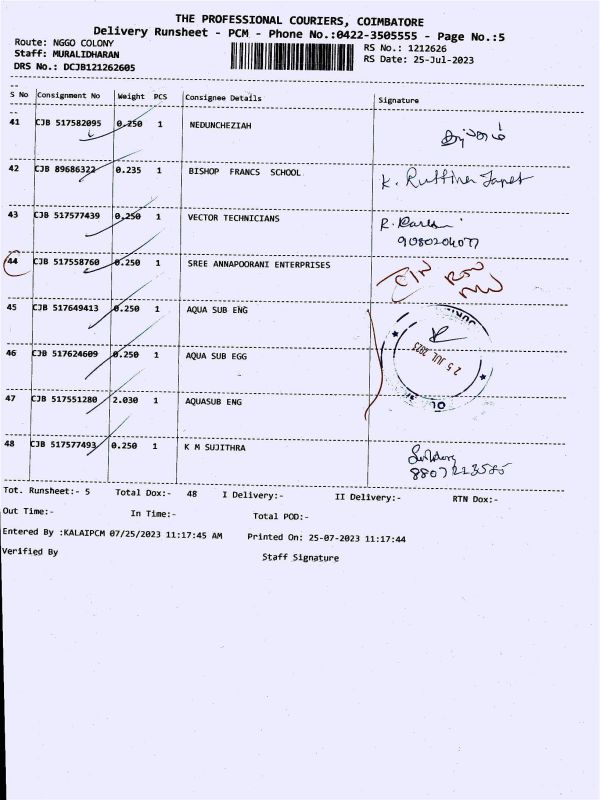 THE PROFESSIONAL COURIERS, COIMBATORE
Delivery Runsheet - PCM - Phone No.:0422-3505555 - Page No.:5
Route: NGGO COLONY
RS No.: 1212626
Staff: MURALIDHARAN
RS Date: 25-Jul-2023
DRS No.: DCJB121262605
S No Consignment No Weight PCS Consignee Details Signature
41 CJB 517582095 0.250 1 NEDUNCHEZIAH
42 CJB 89686322 0.235 1 BISHOP FRANCS SCHOOL K.
43 CJB 517577439 0.250 1 VECTOR TECHNICIANS R.
9080204077
44 CJB 517558760 0.250 1 SREE ANNAPOORANI ENTERPRISES
45 CJB 517649413 0.250 1 AQUA SUB ENG
46 CJB 517624609 0.250 1 AQUA SUB EGG
25 JUL 2023
47 CJB 517551280 2.030 1 AQUASUB ENG
48 CJB 517577493 0.250 1 K M SUJITHRA
Tot. Runsheet:- 5 Total Dox:- 48 I Delivery:- II Delivery:- RTN Dox:-
Out Time:- In Time:- Total POD:-
Entered By :KALAIPCM 07/25/2023 11:17:45 AM Printed On: 25-07-2023 11:17:44
Verified By Staff Signature